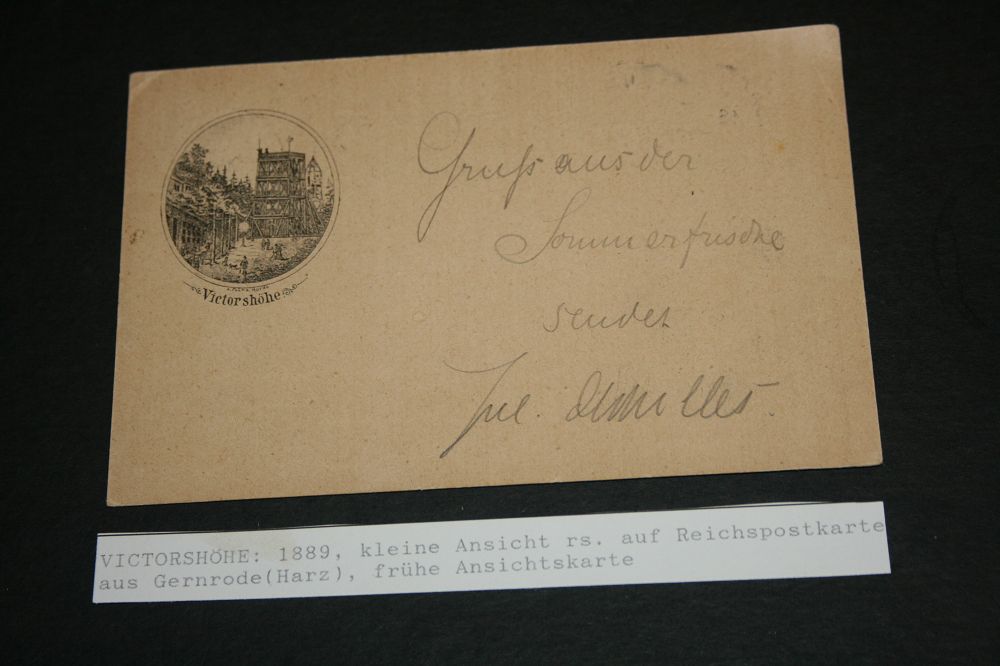 Victorshöhe
Gruß aus der
Sommerfrische
sendet
Jul.
VICTORSHÖHE: 1889, kleine Ansicht rs. auf Reichspostkarte
aus Gernrode(Harz), frühe Ansichtskarte